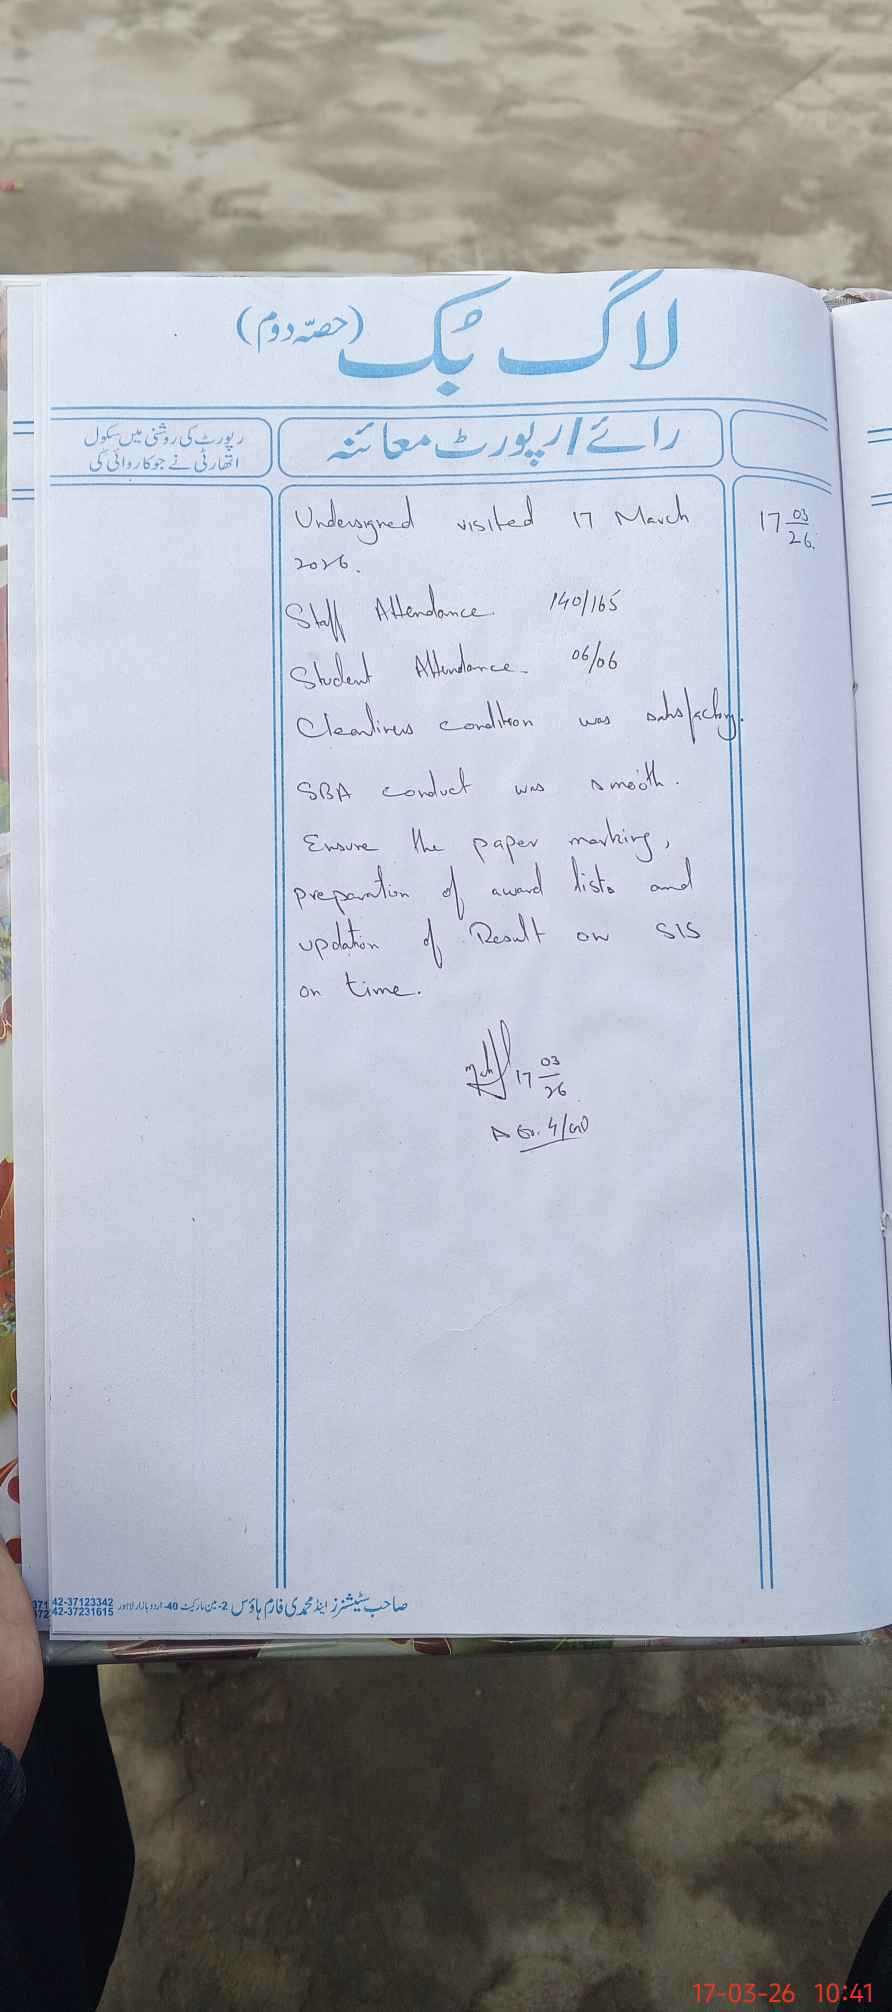 لاگ بُک (حصّہ دوم)
رائے/رپورٹ معائنہ
رپورٹ کی روشنی میں سکول
اتھارٹی نے جو کاروائی کی
17 03/26.
Undersigned visited 17 March
2026.
Staff Attendance. 140/165
Student Attendance. 06/06
Cleanliness condition was satisfactory.
SBA conduct was smooth.
Ensure the paper marking,
preparation of award lists and
updation of Result on SIS
on time.
17 03/26
صاحب سٹیشنرز اینڈ محمدی فارم ہاؤس 2-مین مارکیٹ 40-اردو بازار لاہور
42-37123342
42-37231615
17-03-26 10:41